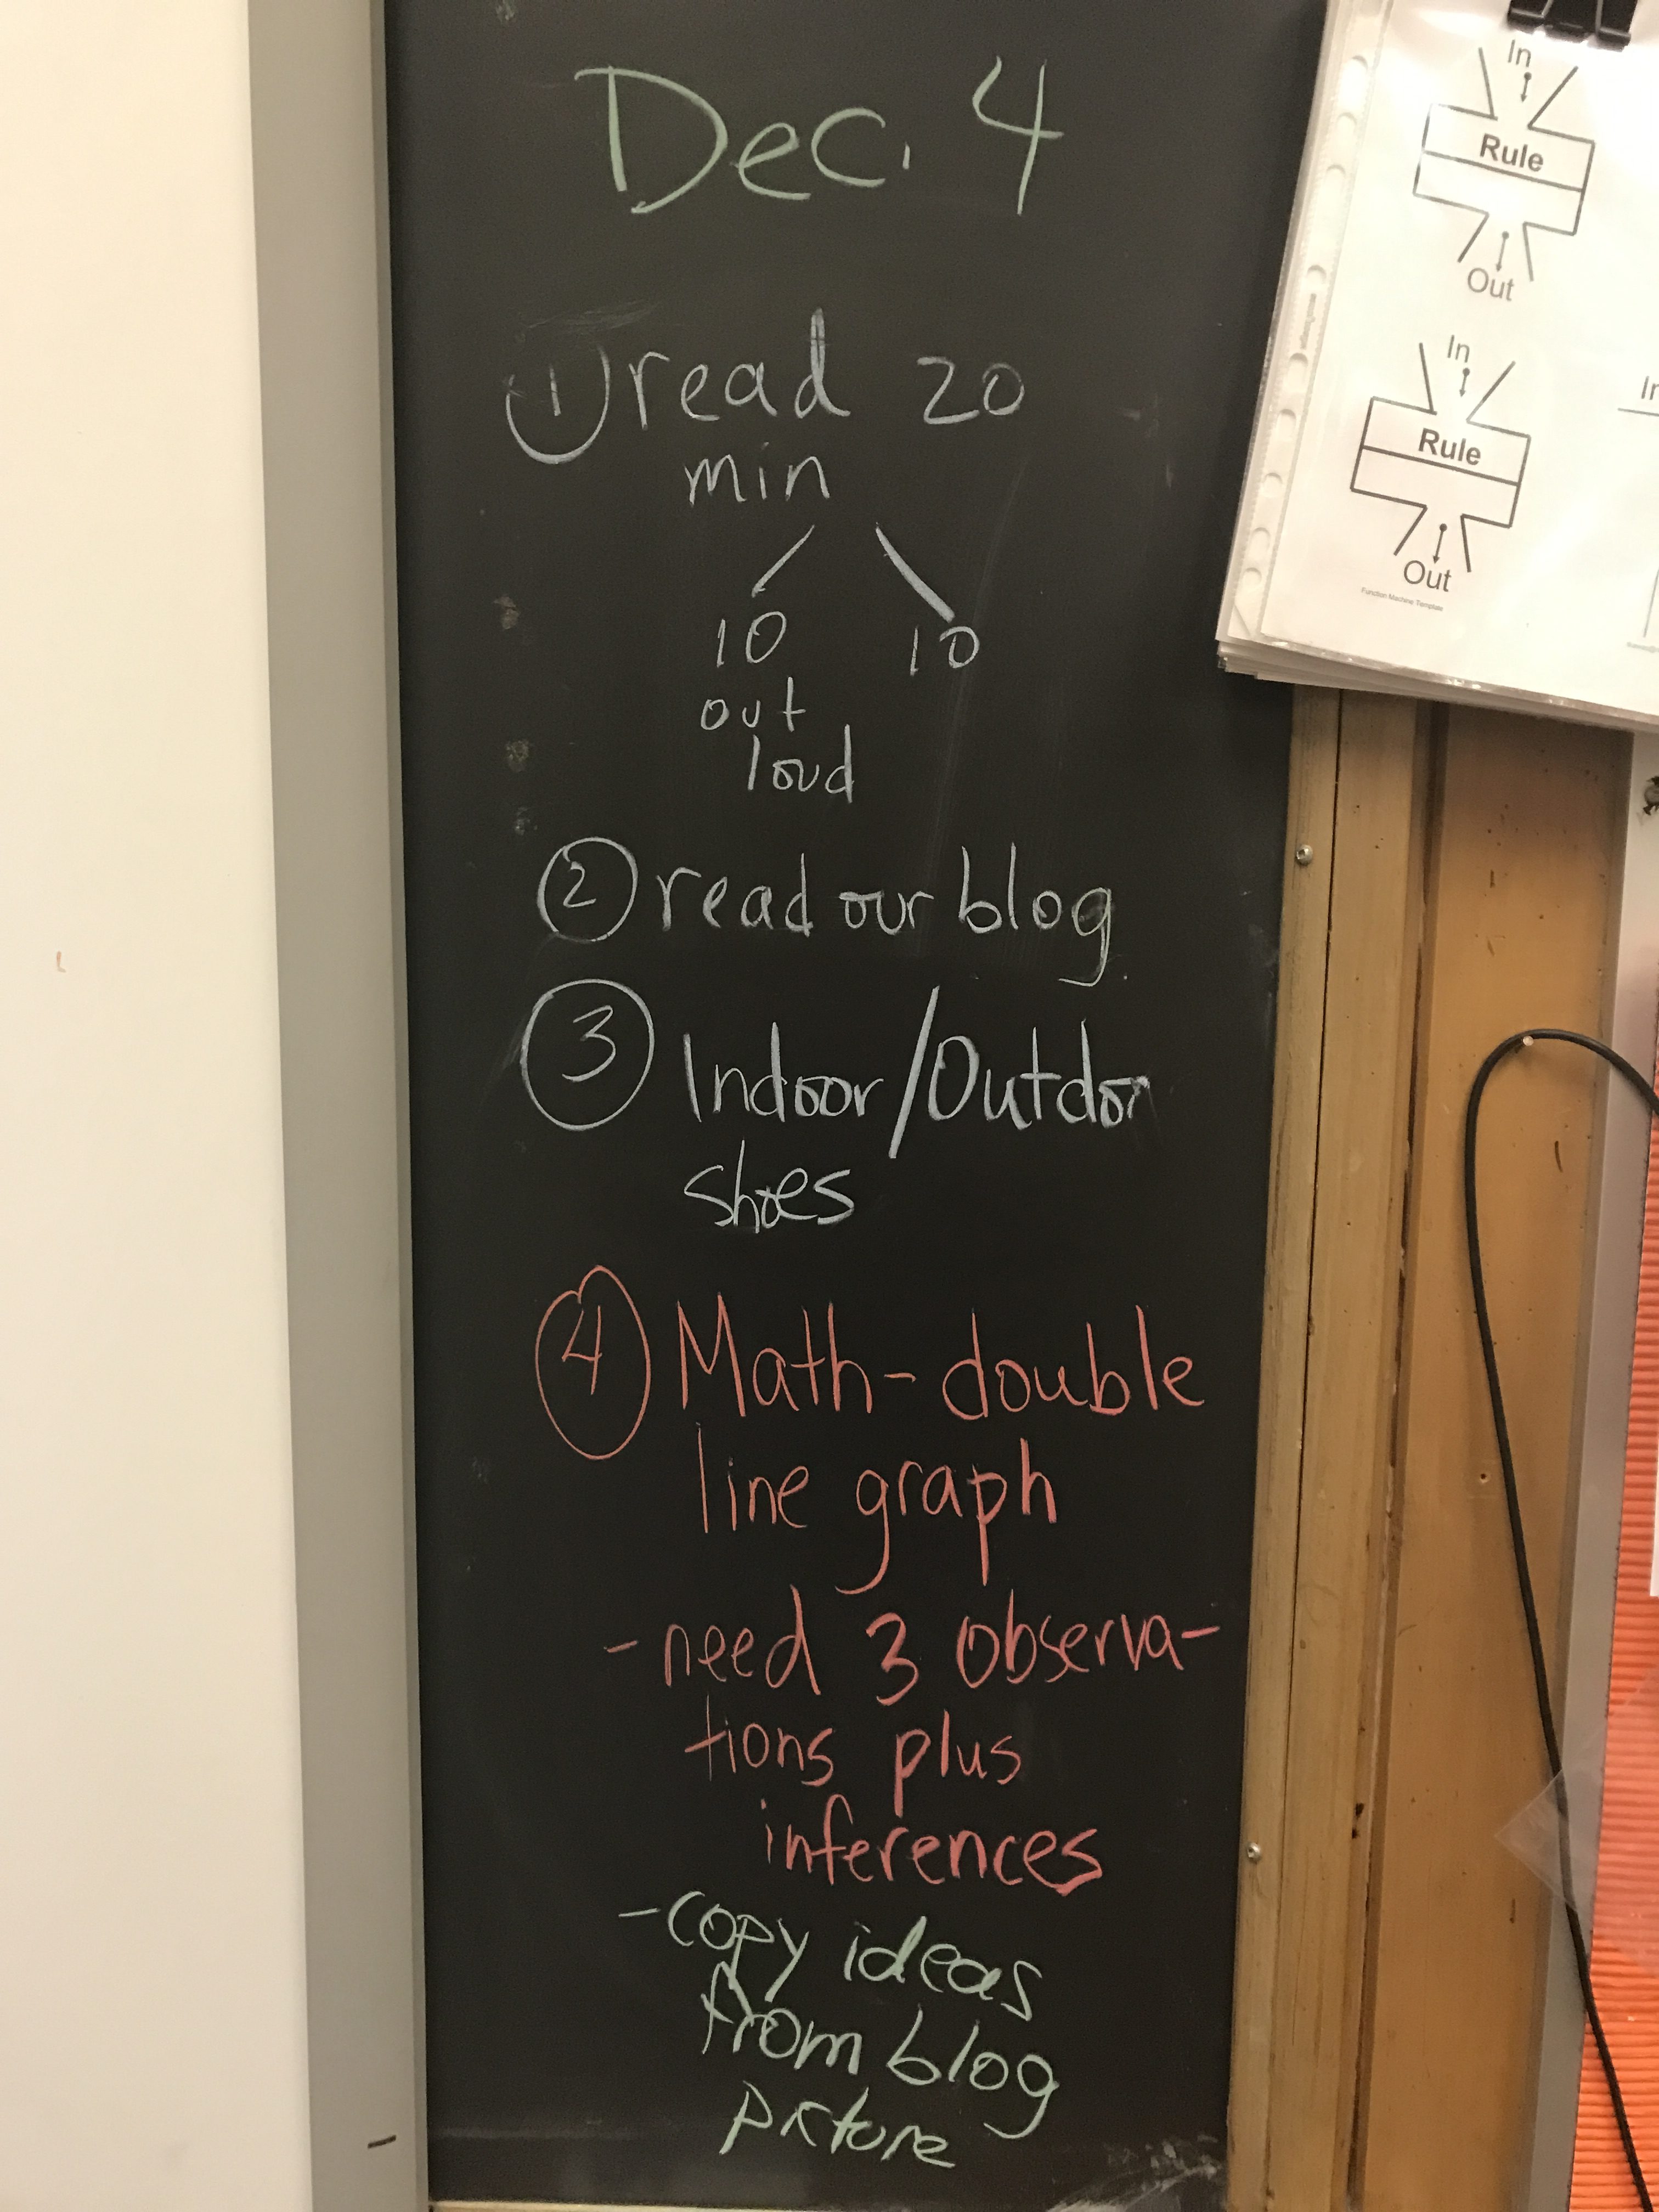 Dec. 4
① read 20
min
10 10
out
loud
② read our blog
③ Indoor/Outdoor
shoes
④ Math-double
line graph
-need 3 observa-
tions plus
inferences
-copy ideas
from blog
picture
In
Rule
Out
In
Rule
Out
Function Machine Template